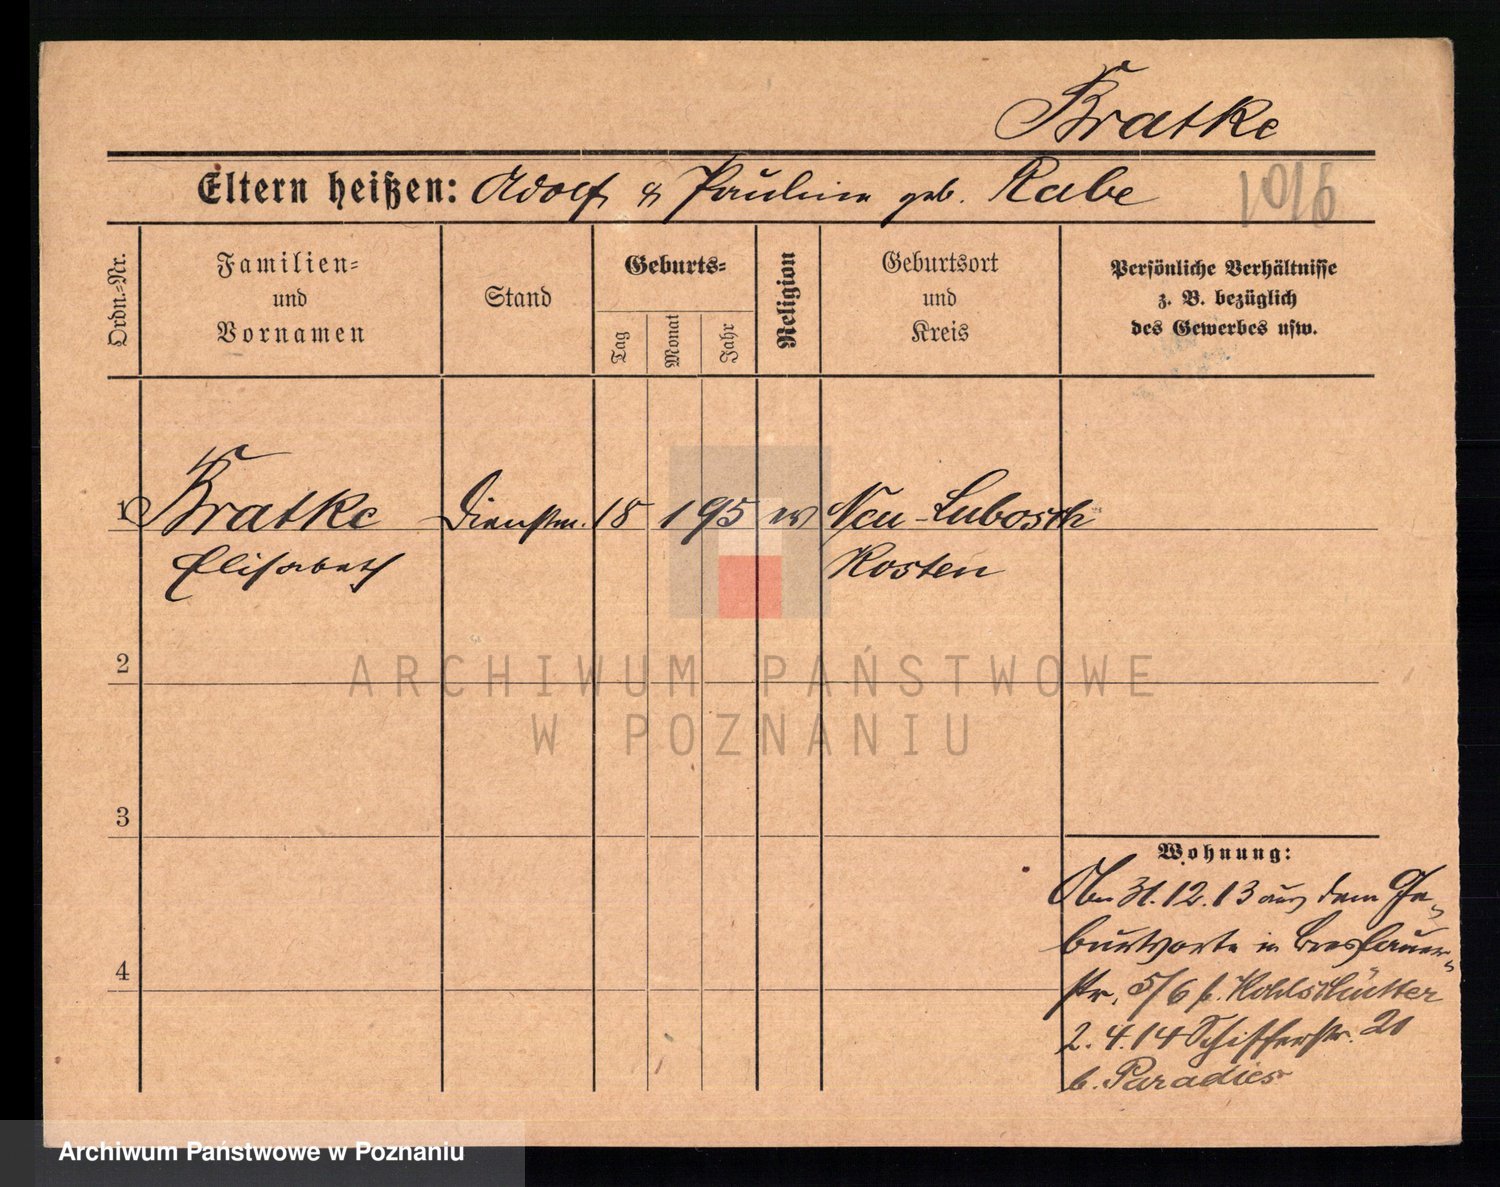 Bratke
Eltern heißen: Adolf & Pauline geb. Rabe
1016
Ordn.-Nr.
Familien-
und
Vornamen
Stand
Geburts-
Tag
Monat
Jahr
Religion
Geburtsort
und
Kreis
Persönliche Verhältnisse
z. B. bezüglich
des Gewerbes usw.
1 Bratke Dienstm. 18 1 95 ev Neu-Lubosch
Elisabeth Kosten
2
3
4
Wohnung:
31.12.13 aus dem Ge-
burtsorte in Breslauer-
str. 5/6 b. Kohlschütter
2.4.14 Schifferstr. 20
b. Paradies
ARCHIWUM PAŃSTWOWE
W POZNANIU
Archiwum Państwowe w Poznaniu